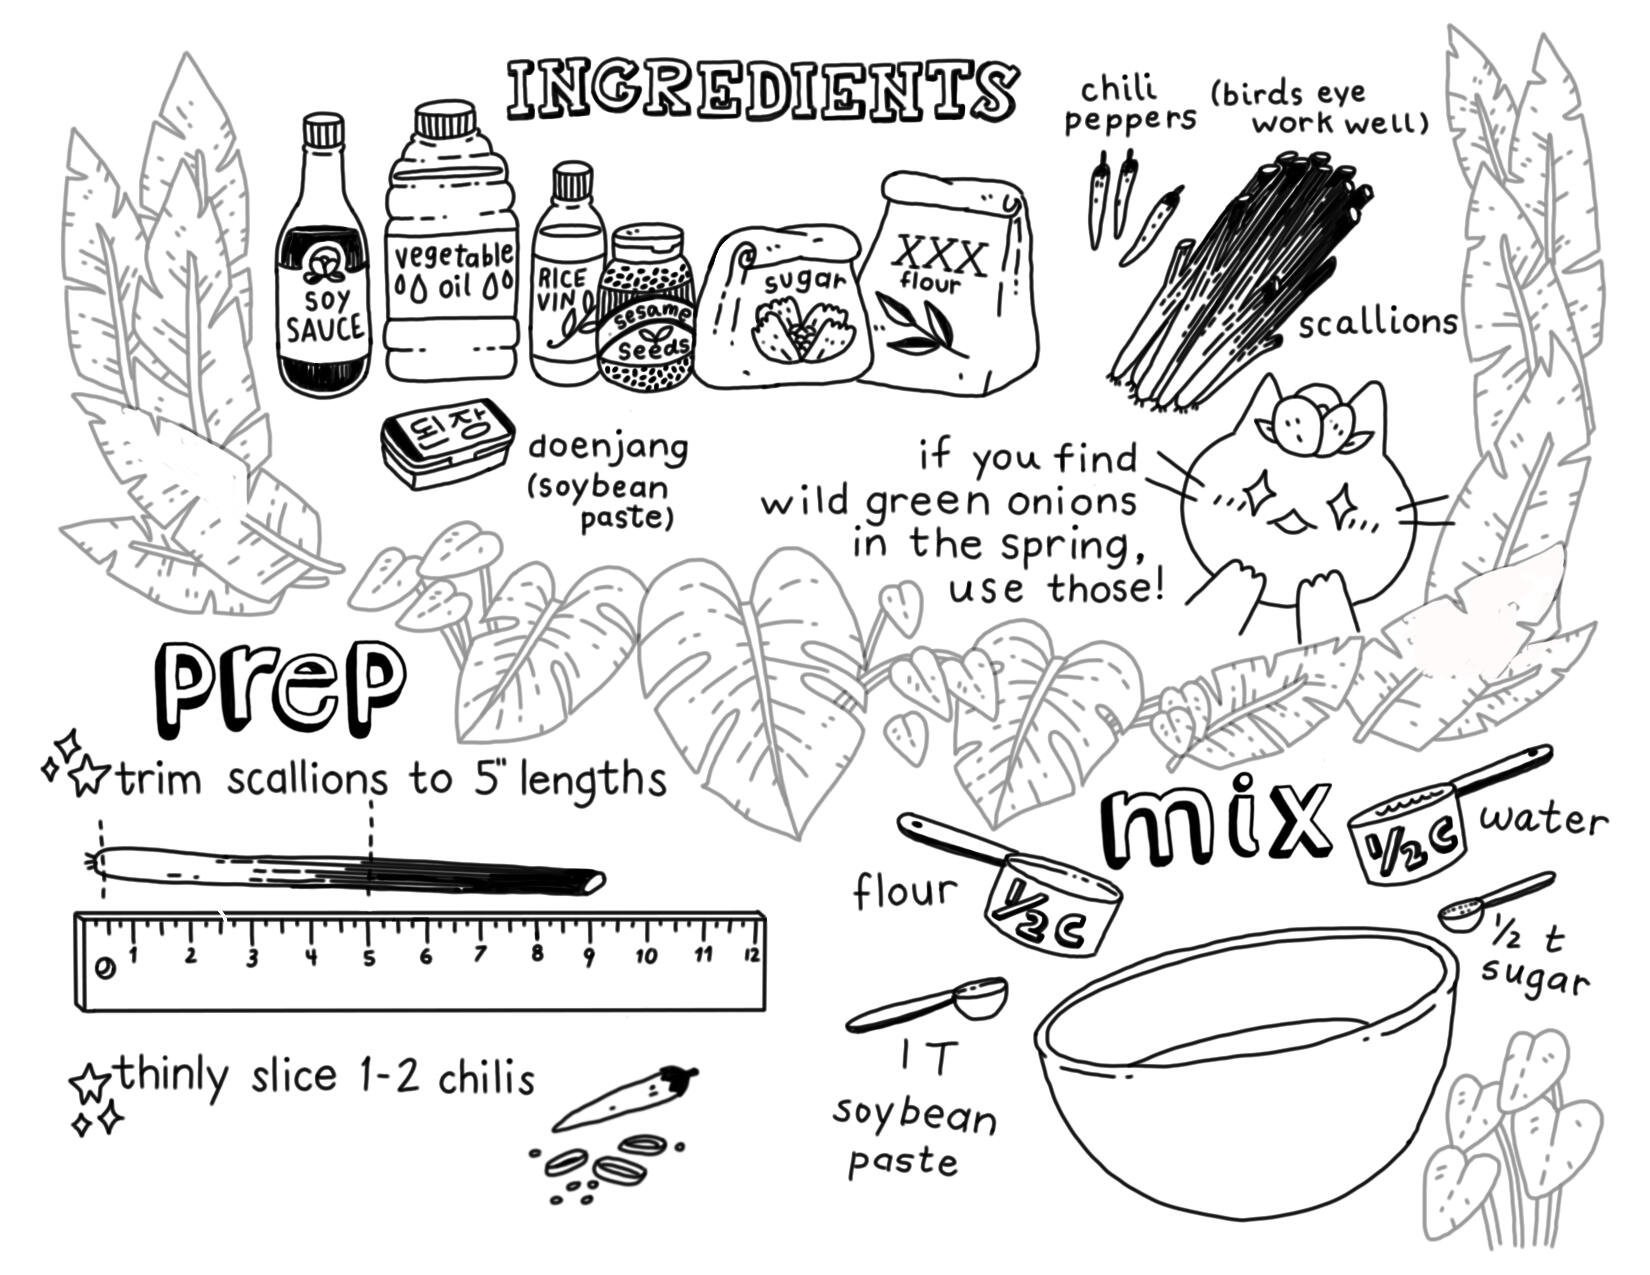 INGREDIENTS
chili
peppers
(birds eye
work well)
SOY
SAUCE
vegetable
oil
RICE
VIN
sesame
seeds
sugar
XXX
flour
scallions
된장
doenjang
(soybean
paste)
if you find
wild green onions
in the spring,
use those!
prep
trim scallions to 5" lengths
1 2 3 4 5 6 7 8 9 10 11 12
thinly slice 1-2 chilis
mix
flour
1/2 C
1/2 C
water
1/2 t
sugar
1 T
soybean
paste